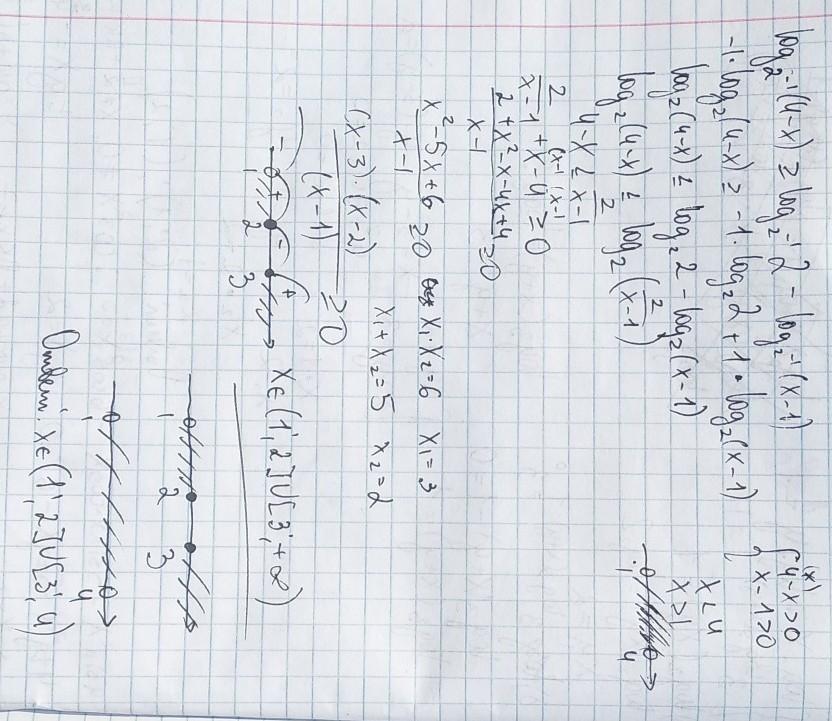 log₂₋₁(4-x) ≥ log₂₋₁2 - log₂₋₁(x-1)
-1·log₂(4-x) ≥ -1·log₂2 + 1·log₂(x-1)
log₂(4-x) ≤ log₂2 - log₂(x-1)
log₂(4-x) ≤ log₂(2/(x-1))
4-x ≤ 2/(x-1)
2/(x-1) + x(x-1) - 4(x-1) ≥ 0
(2+x²-x-4x+4)/(x-1) ≥ 0
(x²-5x+6)/(x-1) ≥ 0 x₁·x₂=6 x₁=3
x₁+x₂=5 x₂=2
((x-3)·(x-2))/(x-1) ≥ 0
- + - +
1 2 3
x∈(1;2]∪[3;+∞)
{4-x>0 (x)
{x-1>0
x<4
x>1
1 4
1 2 3
1 4
Ответ: x∈(1;2]∪[3;4)